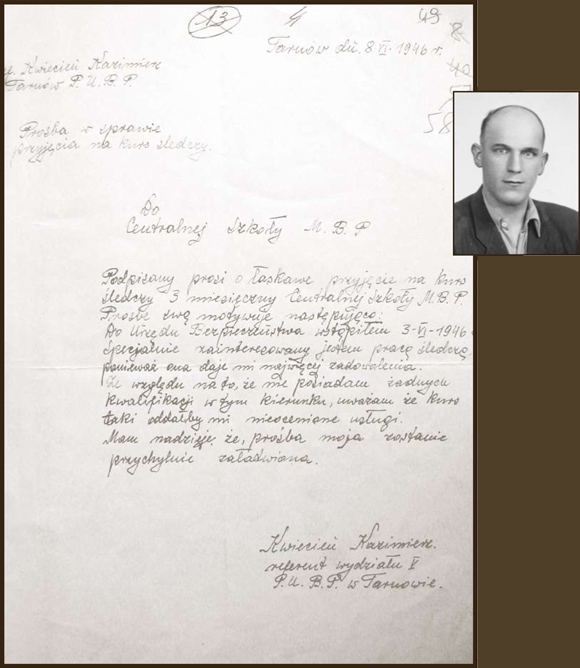 13
49
Tarnów dń. 8 VI. 1946 r.
Kwiecień Kazimierz
Tarnów P.U.B.P.
58
Prośba w sprawie
przyjęcia na kurs śledczy.
Do
Centralnej Szkoły M.B.P
Podpisany prosi o łaskawe przyjęcie na kurs
śledczy 3 miesięczny Centralnej Szkoły M.B.P.
Prośbę swą motywuje następująco:
Do Urzędu Bezpieczeństwa wstąpiłem 3-VI-1946
Specjalnie zainteresowany jestem pracą śledczą,
ponieważ ona daje mi najwięcej zadowolenia.
Ze względu na to, że nie posiadam żadnych
kwalifikacji w tym kierunku, uważam że kurs
taki oddałby mi nieocenione usługi.
Mam nadzieję, że, prośba moja zostanie
przychylnie załadwiona.
Kwiecień Kazimierz.
referent wydziału V
P.U.B.P. w Tarnowie.